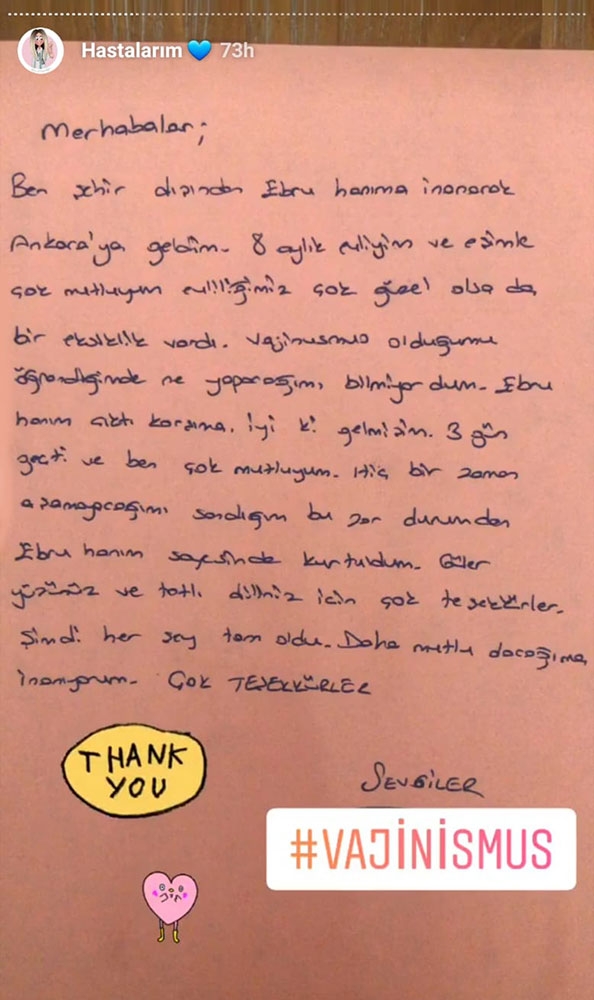 Hastalarım 💙 73h
Merhabalar;
Ben şehir dışından Ebru hanıma inanarak
Ankara'ya geldim. 8 aylık evliyim ve eşimle
çok mutluyum evliliğimiz çok güzel olsa da,
bir eksiklik vardı. Vajinusmus olduğumu
öğrendiğimde ne yapacağımı bilmiyordum. Ebru
hanım çıktı karşıma. iyi ki gelmişim. 3 gün
geçti ve ben çok mutluyum. Hiç bir zaman
aşamayacağımı sandığım bu zor durumdan
Ebru hanım sayesinde kurtuldum. Güler
yüzünüz ve tatlı diliniz için çok teşekkürler.
Şimdi her şey tam oldu. Daha mutlu olacağıma,
inanıyorum. Çok TEŞEKKÜRLER
THANK
YOU
SEVGİLER
#VAJİNİSMUS